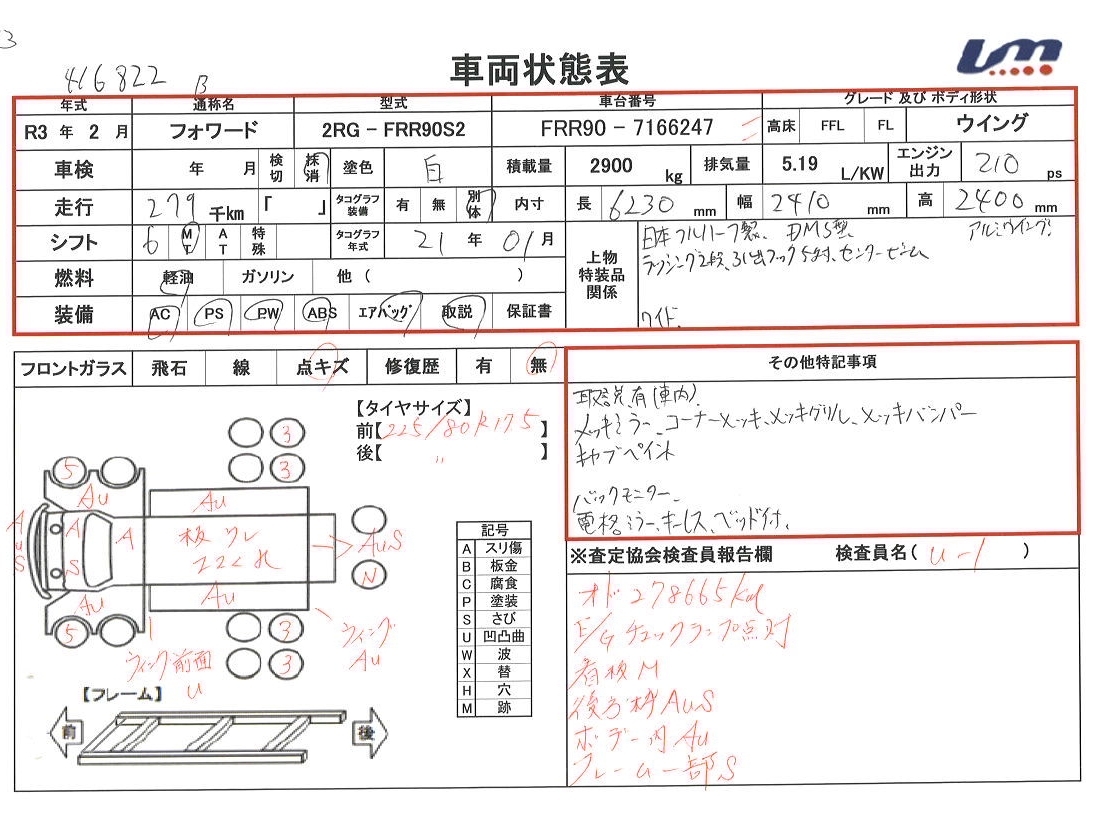 416822 B
車両状態表
年式 通称名 型式 車台番号 グレード 及び ボディ形状
R3 年 2 月 フォワード 2RG - FRR90S2 FRR90 - 7166247 高床 FFL FL ウイング
車検 年 月 検切 抹消 塗色 白 積載量 2900 kg 排気量 5.19 L/KW エンジン出力 210 ps
走行 279 千km 「 」 タコグラフ装備 有 無 別体 内寸 長 6230 mm 幅 2410 mm 高 2400 mm
シフト 6 MT AT 特殊 タコグラフ年式 21 年 01 月
上物特装品関係 日本フルハーフ製、DMS型 アルミウイング!
ラッシング2段、引出フック5対、センタービーム
ワイド、
燃料 軽油 ガソリン 他 ( )
装備 AC PS PW ABS エアバッグ 取説 保証書
フロントガラス 飛石 線 点キズ 修復歴 有 無
その他特記事項
取説有(車内)
メッキミラー、コーナーメッキ、メッキグリル、メッキバンパー
キャブペイント
バックモニター、
電格ミラー、キーレス、ベッド付、
【タイヤサイズ】
前【225/80R175】
後【 〃 】
3
3
5
Au
Au
A
u
S
A
S
A
板ワレ
ササクれ
AuS
N
Au
Au
5
3
3
ウィング
Au
ウィング前面
U
【フレーム】
前
後
記号
A スリ傷
B 板金
C 腐食
P 塗装
S さび
U 凹凸曲
W 波
X 替
H 穴
M 跡
※査定協会検査員報告欄 検査員名( U-1 )
オド278665km
E/Gチェックランプ点灯
看板M
後方枠AuS
ボデー内Au
フレーム一部S